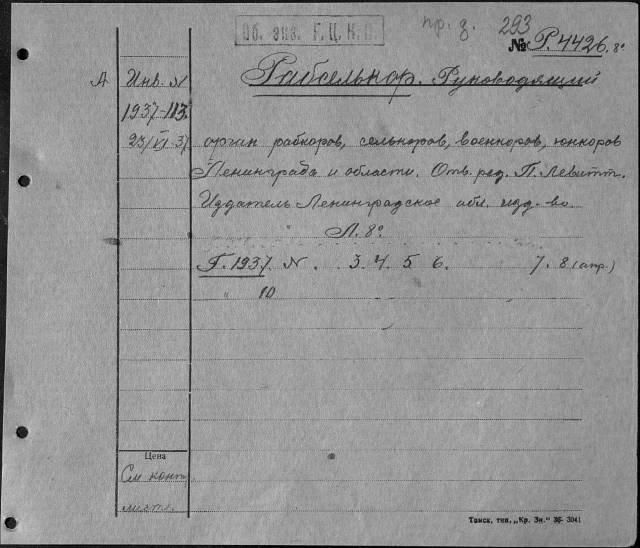 Об. экз. Г.Ц.К.П.
пр. д. 293
№ Р.4426. 8°
А Инв. N Рабселькор. Руководящий
1937-113
23/VI 37 орган рабкоров, селькоров, военкоров, юнкоров
Ленинграда и области. Отв. ред. П. Левитт.
Издатель Ленинградское обл. изд-во
Л. 8°
Г. 1937. N. 3. 4. 5 6. 7. 8 (апр.)
" 10
Цена
См конт
листе.
Томск, тип. „Кр. Зн." 3041